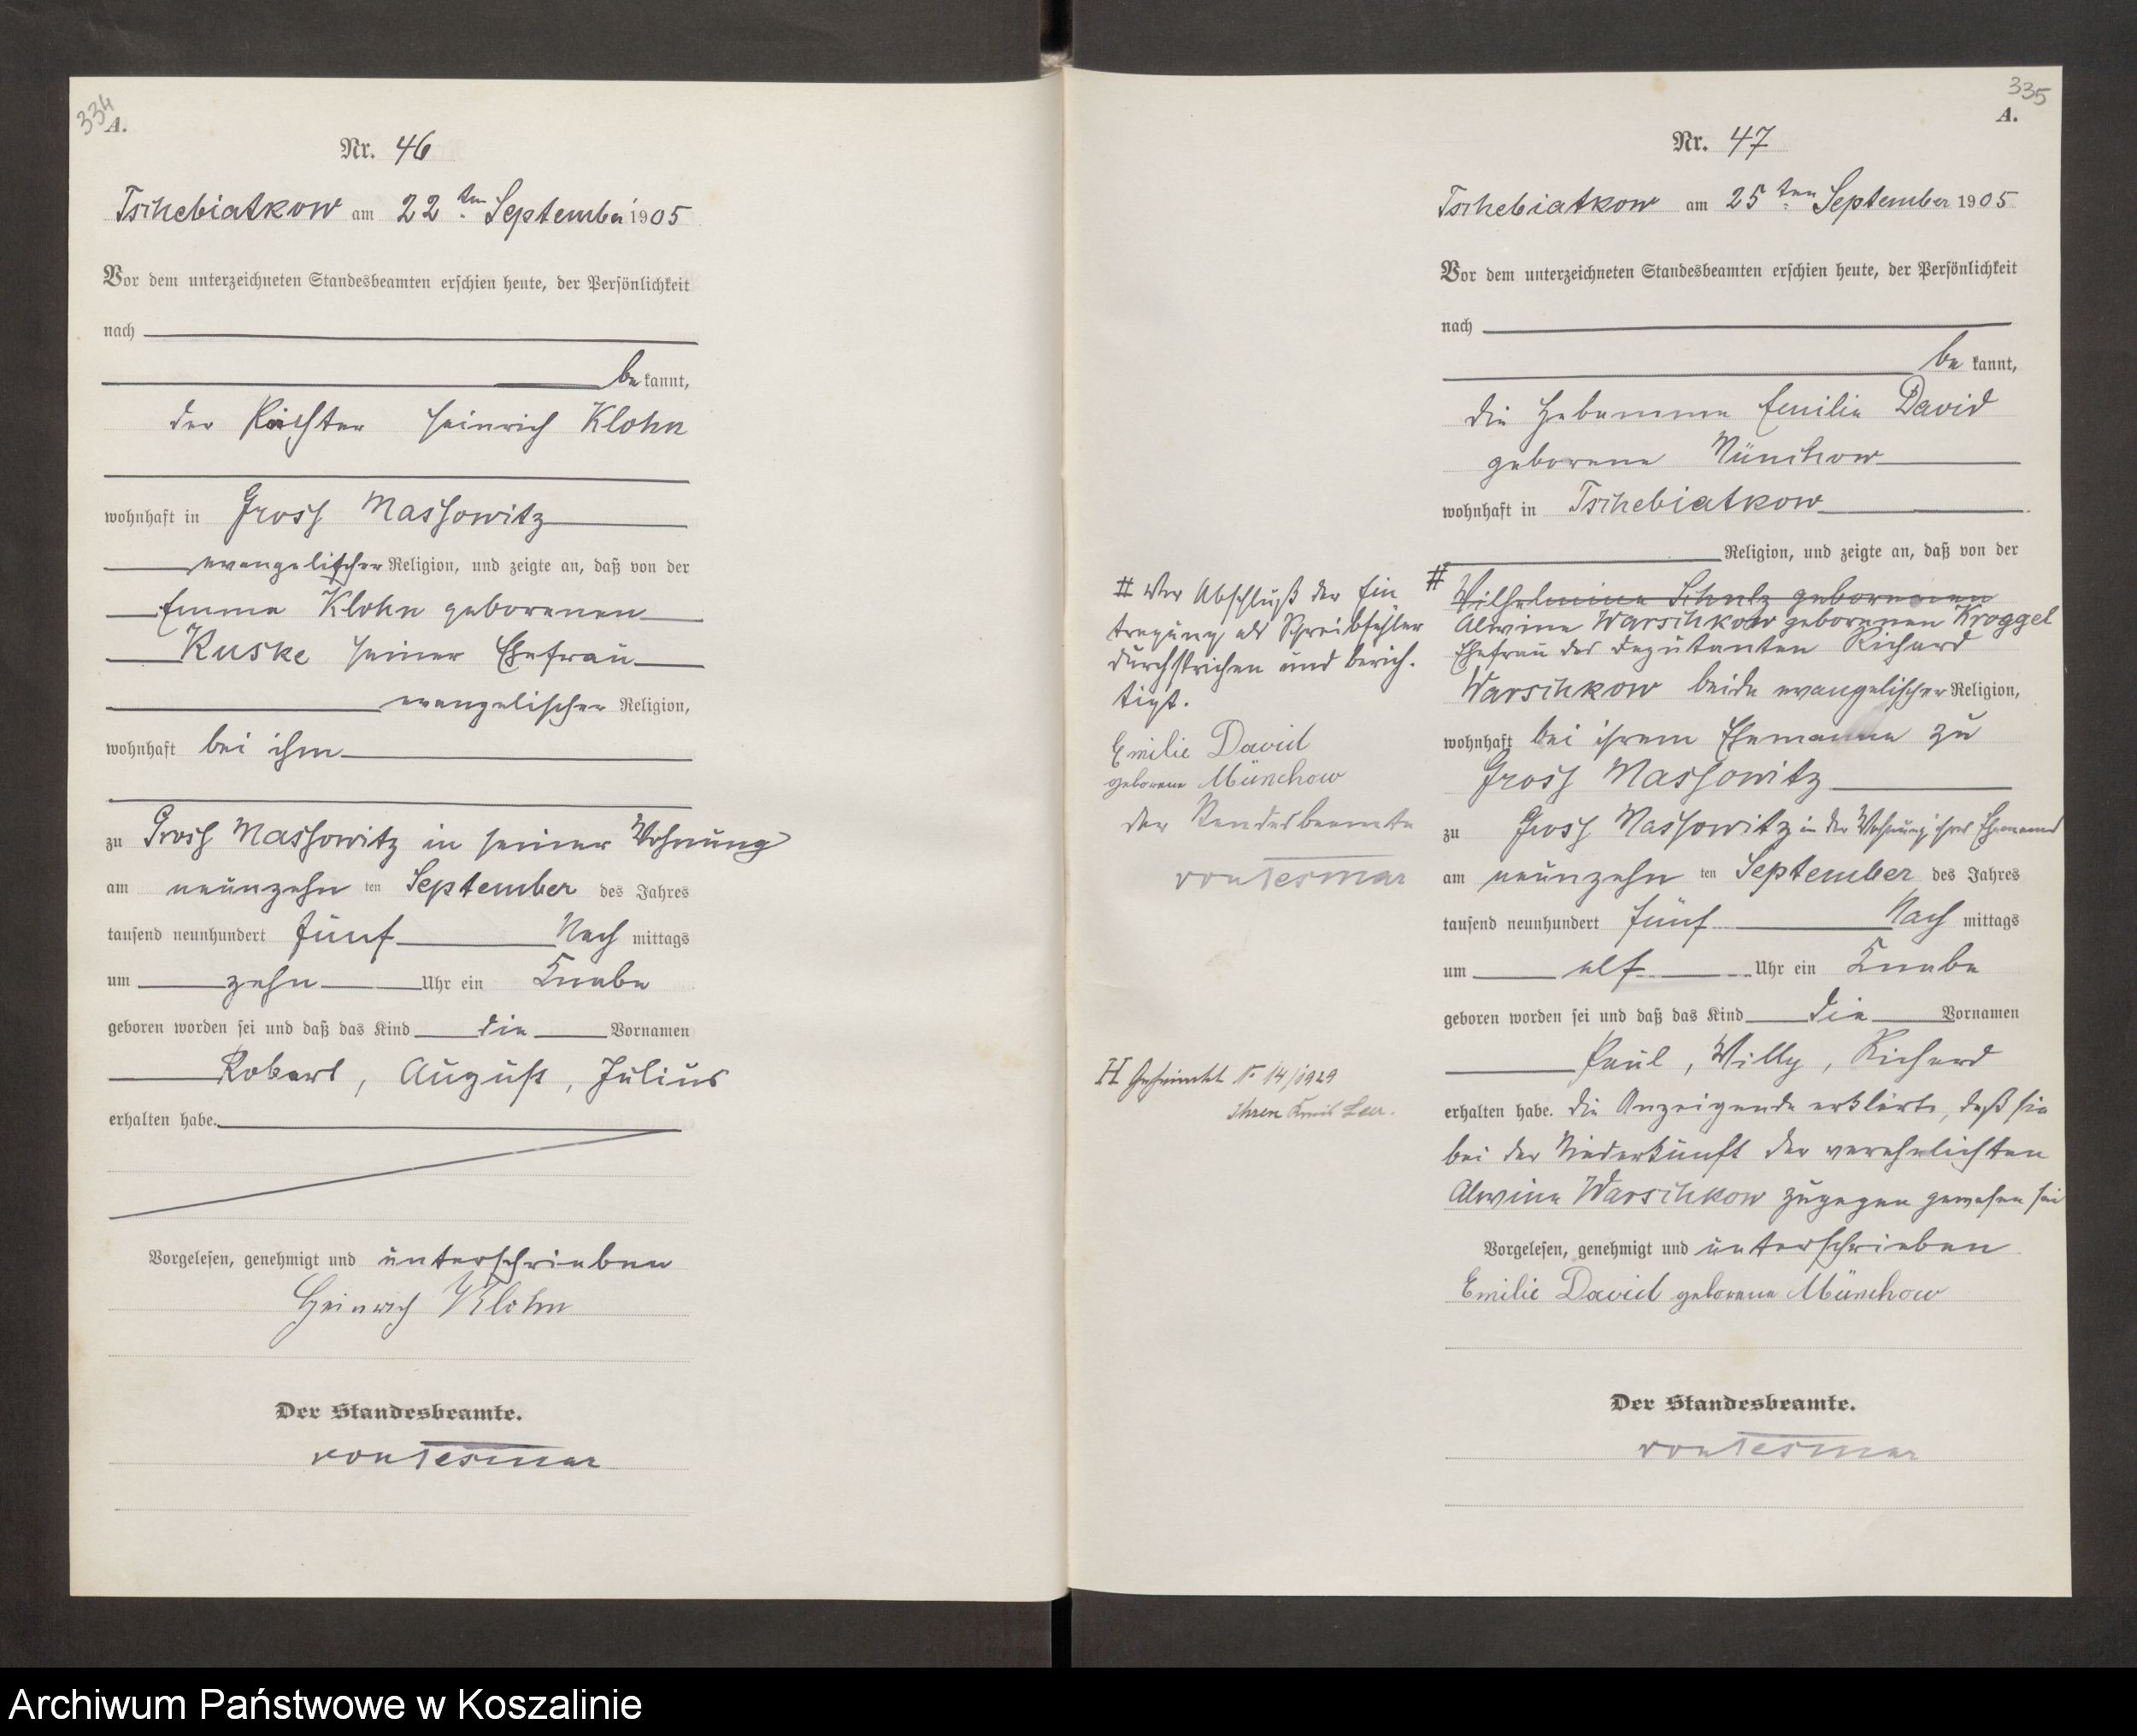 334
A.
Nr. 46
Tschebiatkow am 22 ten September 1905
Vor dem unterzeichneten Standesbeamten erschien heute, der Persönlichkeit
nach
be kannt,
der Pächter Heinrich Klohn
wohnhaft in Gross Massowitz
evangelischer Religion, und zeigte an, daß von der
Emma Klohn geborenen
Kuske seiner Ehefrau
evangelischer Religion,
wohnhaft bei ihm
zu Gross Massowitz in seiner Wohnung
am neunzehn ten September des Jahres
tausend neunhundert fünf Nach mittags
um zehn Uhr ein Knabe
geboren worden sei und daß das Kind die Vornamen
Robert, August, Julius
erhalten habe.
Vorgelesen, genehmigt und unterschrieben
Heinrich Klohn
Der Standesbeamte.
von Tesmar
335
A.
Nr. 47
Tschebiatkow am 25 ten September 1905
Vor dem unterzeichneten Standesbeamten erschien heute, der Persönlichkeit
nach
be kannt,
die Hebamme Emilie David
geborene Münchow
wohnhaft in Tschebiatkow
Religion, und zeigte an, daß von der
# Wilhelmine Schulz geborenen
Alwine Warschkow geborenen Kroggel
Ehefrau des Deputanten Richard
Warschkow beide evangelischer Religion,
wohnhaft bei ihrem Ehemanne zu
Gross Massowitz
zu Gross Massowitz in der Wohnung ihres Ehemanns
am neunzehn ten September des Jahres
tausend neunhundert fünf Nach mittags
um elf Uhr ein Knabe
geboren worden sei und daß das Kind die Vornamen
Paul, Willy, Richard
erhalten habe. Die Anzeigende erklärte, daß sie
bei der Niederkunft der verehelichten
Alwine Warschkow zugegen gewesen sei
Vorgelesen, genehmigt und unterschrieben
Emilie David geborene Münchow
Der Standesbeamte.
von Tesmar
# Vor Abschluß der Ein
tragung als Schreibfehler
durchstrichen und berich.
tigt.
Emilie David
geborene Münchow
der Standesbeamte
von Tesmar
H Geheiratet No 14/1929
Archiwum Państwowe w Koszalinie